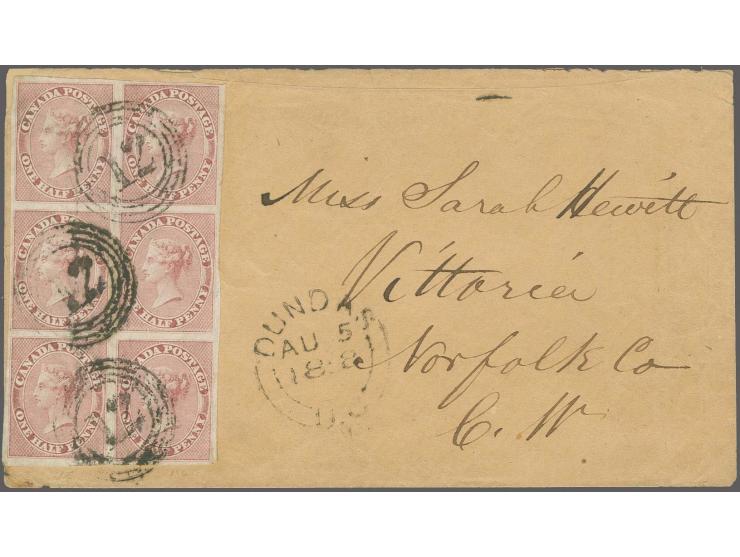 CANADA POSTAGE
ONE HALF PENNY
CANADA POSTAGE
ONE HALF PENNY
CANADA POSTAGE
ONE HALF PENNY
CANADA POSTAGE
HALF PENNY
CANADA POSTAGE
ONE HALF PENNY
POSTAGE
PENNY
Miss Sarah Hewitt
Vittoria
Norfolk Co
C. W
DUNDAS
AU 5